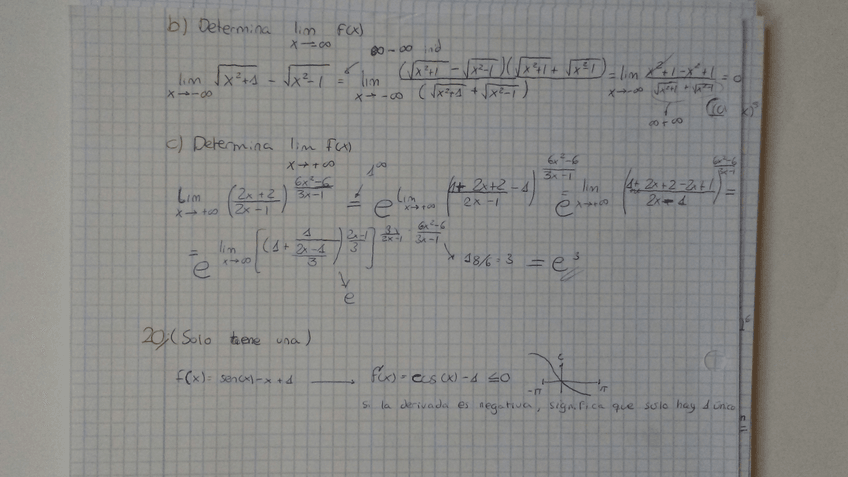 b) Determina lim f(x)
x→-∞
∞-∞ ind
lim x→-∞ √(x²+1) - √(x²-1) = lim x→-∞ (√(x²+1) - √(x²-1))(√(x²+1) + √(x²-1)) / (√(x²+1) + √(x²-1)) = lim x→-∞ (x²+1-x²+1) / (√(x²+1) + √(x²-1)) = 0
∞+∞
c) Determina lim f(x)
x→+∞
1^∞
Lim x→+∞ ((2x+2)/(2x-1))^((6x²-6)/(3x-1)) = e^Lim x→+∞ (1 + (2x+2)/(2x-1) - 1)^((6x²-6)/(3x-1)) = e^lim x→+∞ (1 + (2x+2-2x+1)/(2x-1))^((6x²-6)/(3x-1)) =
= e^lim x→∞ [(1 + 1/((2x-1)/3))^((2x-1)/3)]^(3/(2x-1) · (6x²-6)/(3x-1)) → 18/6 = 3 = e³
e
20/ (Solo tiene una)
f(x) = sen(x)-x+1 → f'(x) = cos(x)-1 ≤0
-π π
si la derivada es negativa, significa que solo hay 1 único